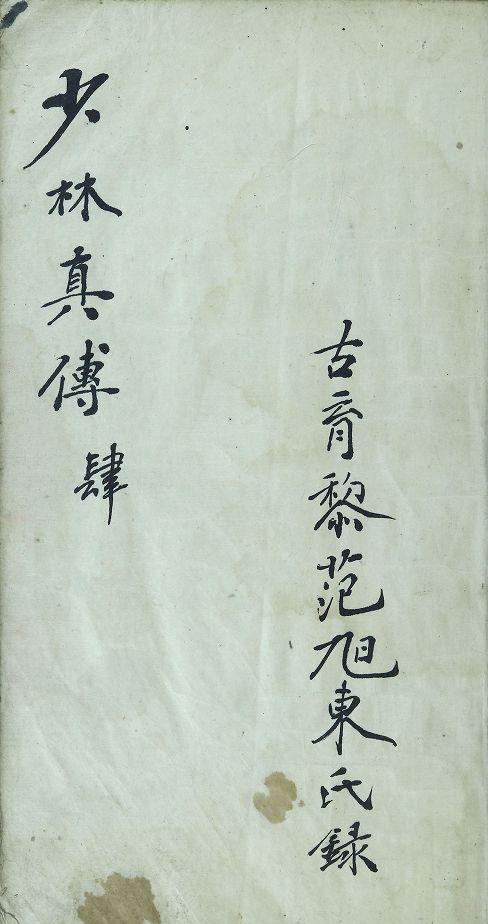 古育黎范旭東氏録
少林真傳 肆